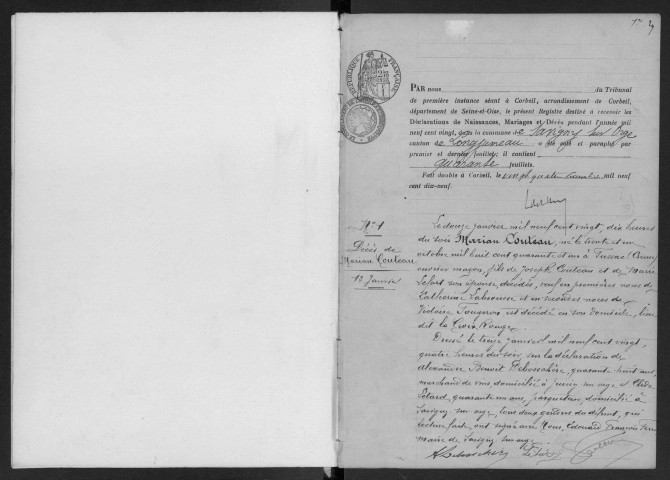 RÉPUBLIQUE FRANÇAISE
PAR nous du Tribunal
de première instance séant à Corbeil, arrondissement de Corbeil,
département de Seine-et-Oise, le présent Registre destiné à recevoir les
Déclarations de Naissances, Mariages et Décès pendant l'année mil
neuf cent vingt, dans la commune de Savigny sur Orge
canton de Longjumeau a été coté et paraphé par
premier et dernier feuillets; il contient
quarante feuillets.
Fait double à Corbeil, le vingt quatre mil neuf
cent dix-neuf.
N° 1
Décès de
Marian Couleau
12 Janvier
Le douze janvier mil neuf cent vingt, dix heures
du soir Marian Couleau, né le trente et un
octobre mil huit cent quarante et un à
ouvrier maçon, fils de Joseph Couleau et de Marie
Lefort son épouse, décédés, veuf en premières noces de
Catherine et en secondes noces de
Victoire Fougeron est décédé en son domicile, lieu
dit la Croix Rouge.
Dressé le treize janvier mil neuf cent vingt,
quatre heures du soir, sur la déclaration de
Alexandre Benoit Debosschère, quarante huit ans,
marchand de vins, domicilié à Juvisy sur orge et
Letard, quarante un ans, domicilié à
Savigny sur orge, tous deux gendres du défunt, qui
lecture faite ont signé avec Nous, Edouard François
maire de Savigny sur orge